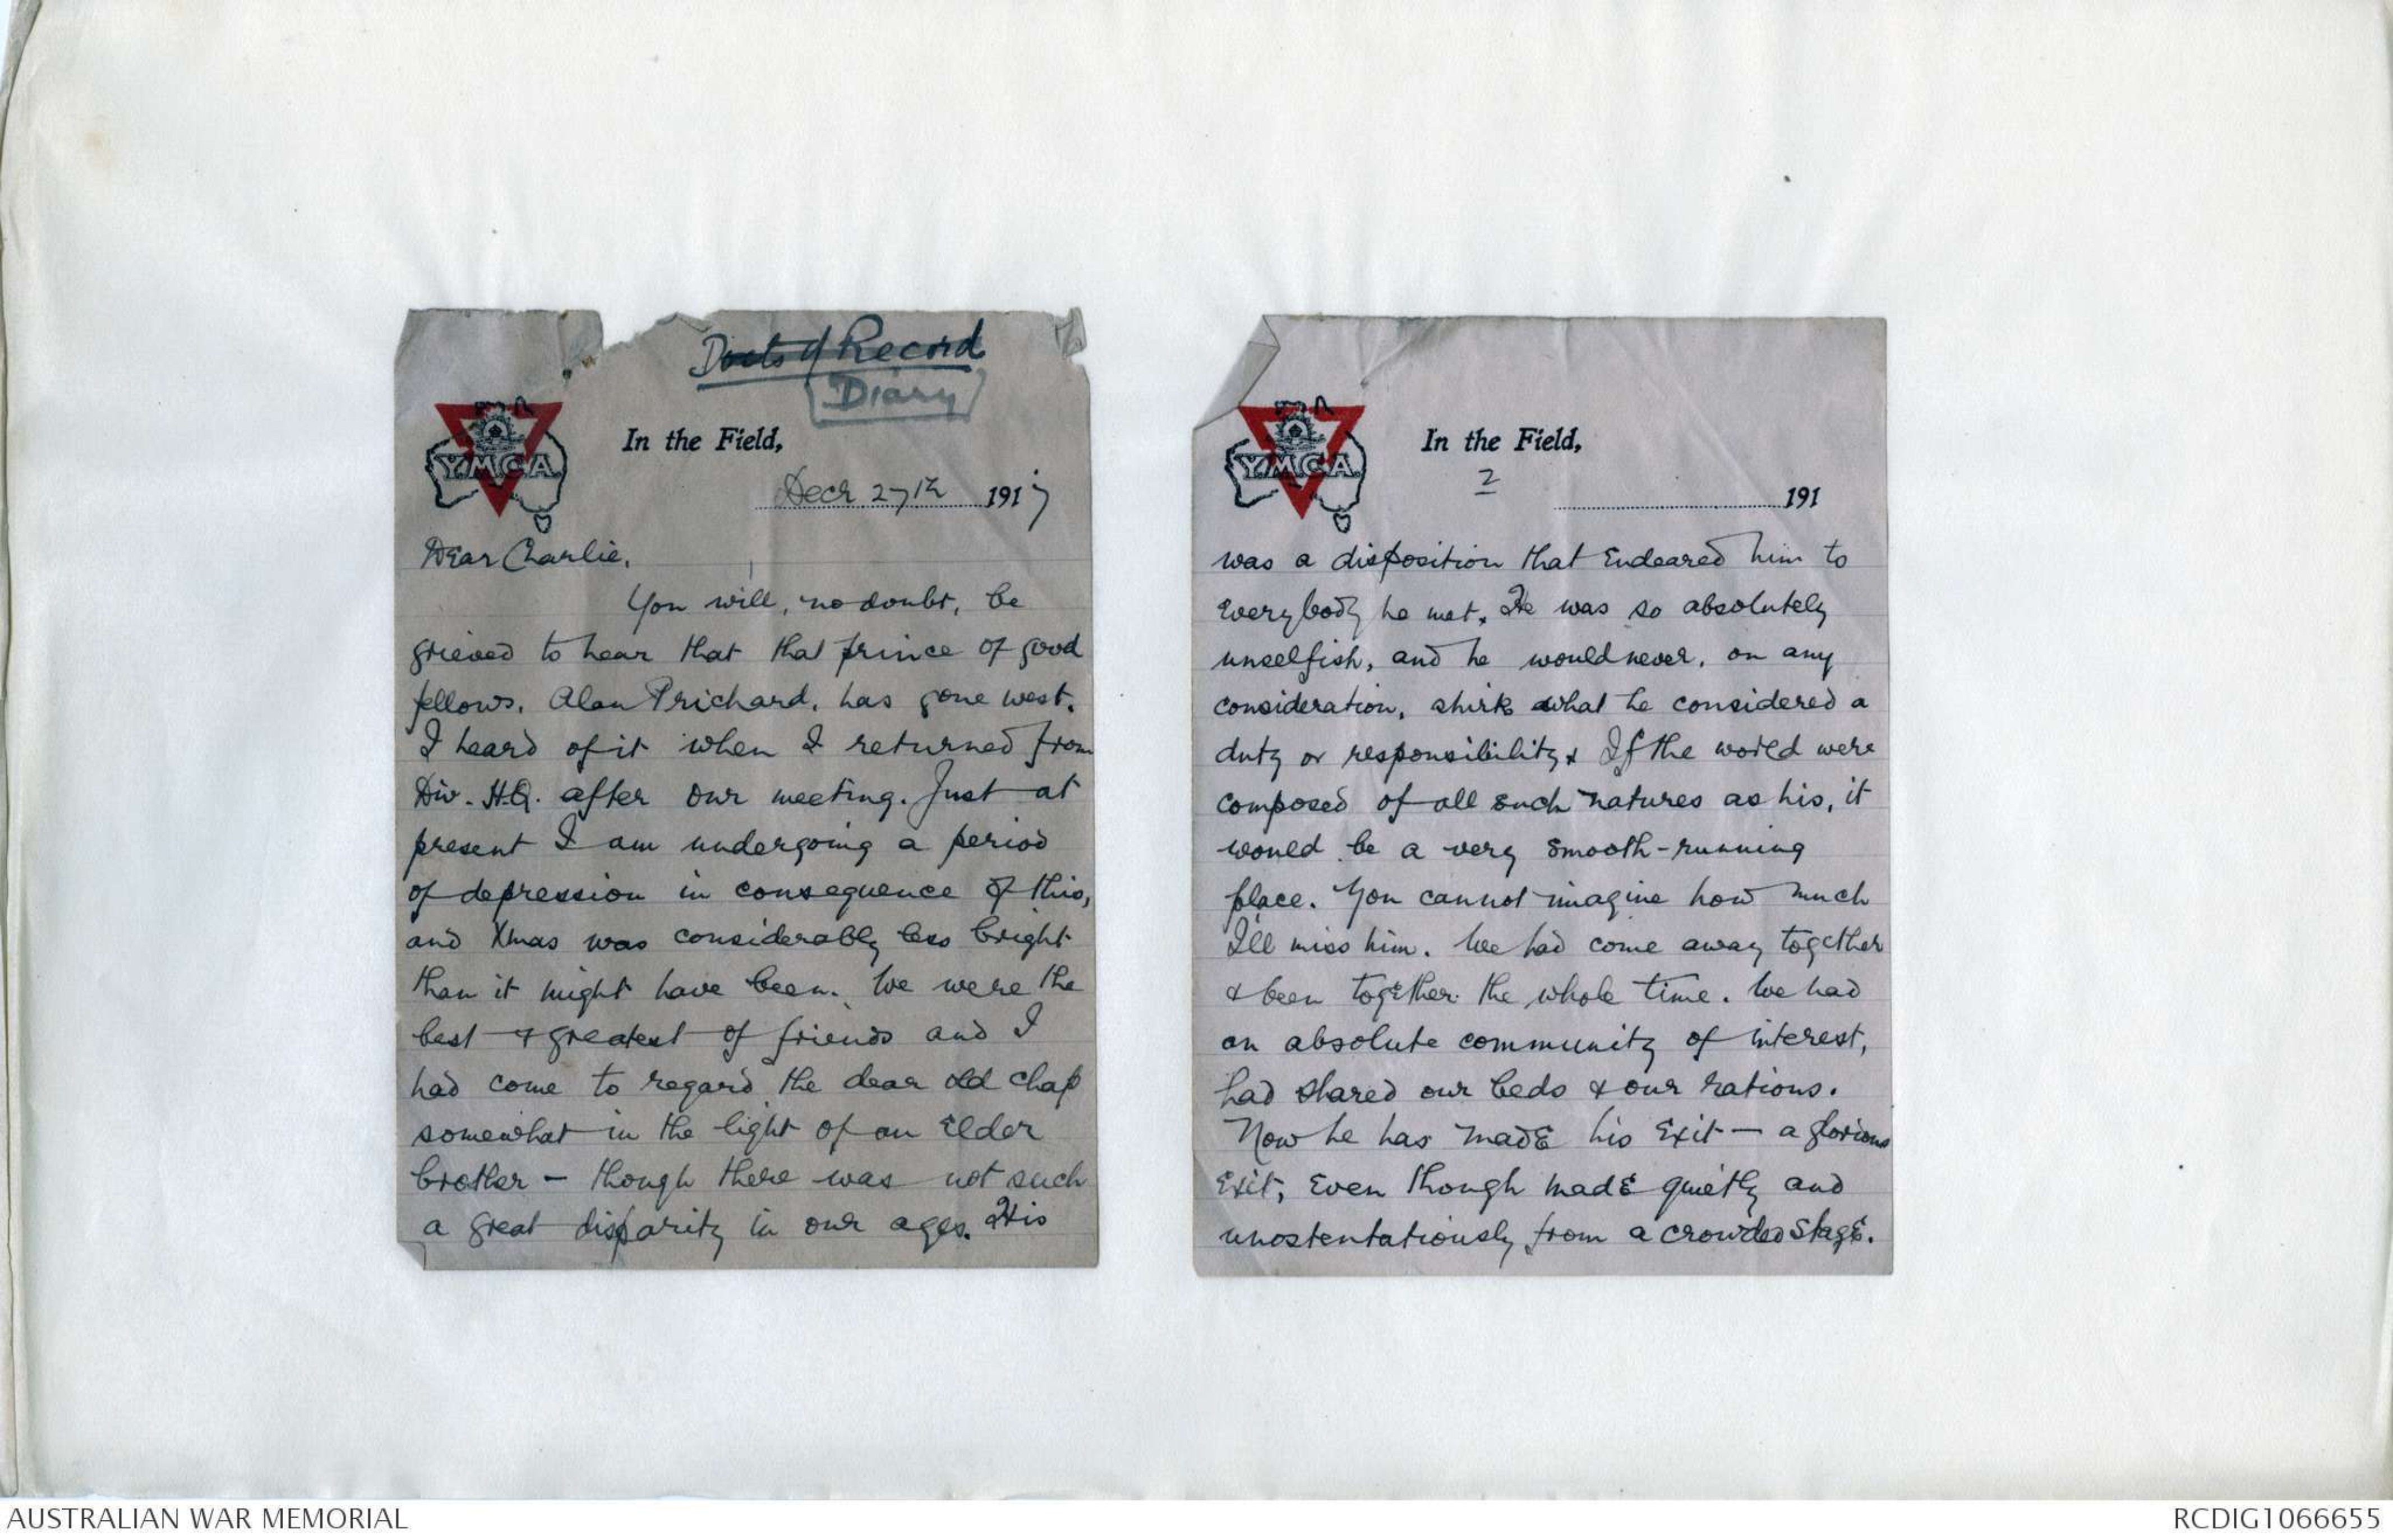 Docts of Record
Diary
Y.M.C.A.
In the Field,
Decr 27th 1917
Dear Charlie,
You will, no doubt, be
grieved to hear that that prince of good
fellows, Alan Prichard, has gone west.
I heard of it when I returned from
Div. H.Q. after our meeting. Just at
present I am undergoing a period
of depression in consequence of this,
and Xmas was considerably less bright
than it might have been. We were the
best & greatest of friends and I
had come to regard the dear old chap
somewhat in the light of an elder
brother – though there was not such
a great disparity in our ages. His
Y.M.C.A.
In the Field,
2
191
was a disposition that endeared him to
everybody he met. He was so absolutely
unselfish, and he would never, on any
consideration, shirk what he considered a
duty or responsibility. If the world were
composed of all such natures as his, it
would be a very smooth-running
place. You cannot imagine how much
I'll miss him. We had come away together
& been together the whole time. We had
an absolute community of interest,
had shared our beds & our rations.
Now he has made his exit – a glorious
exit, even though made quietly and
unostentatiously from a crowded stage.
AUSTRALIAN WAR MEMORIAL
RCDIG1066655